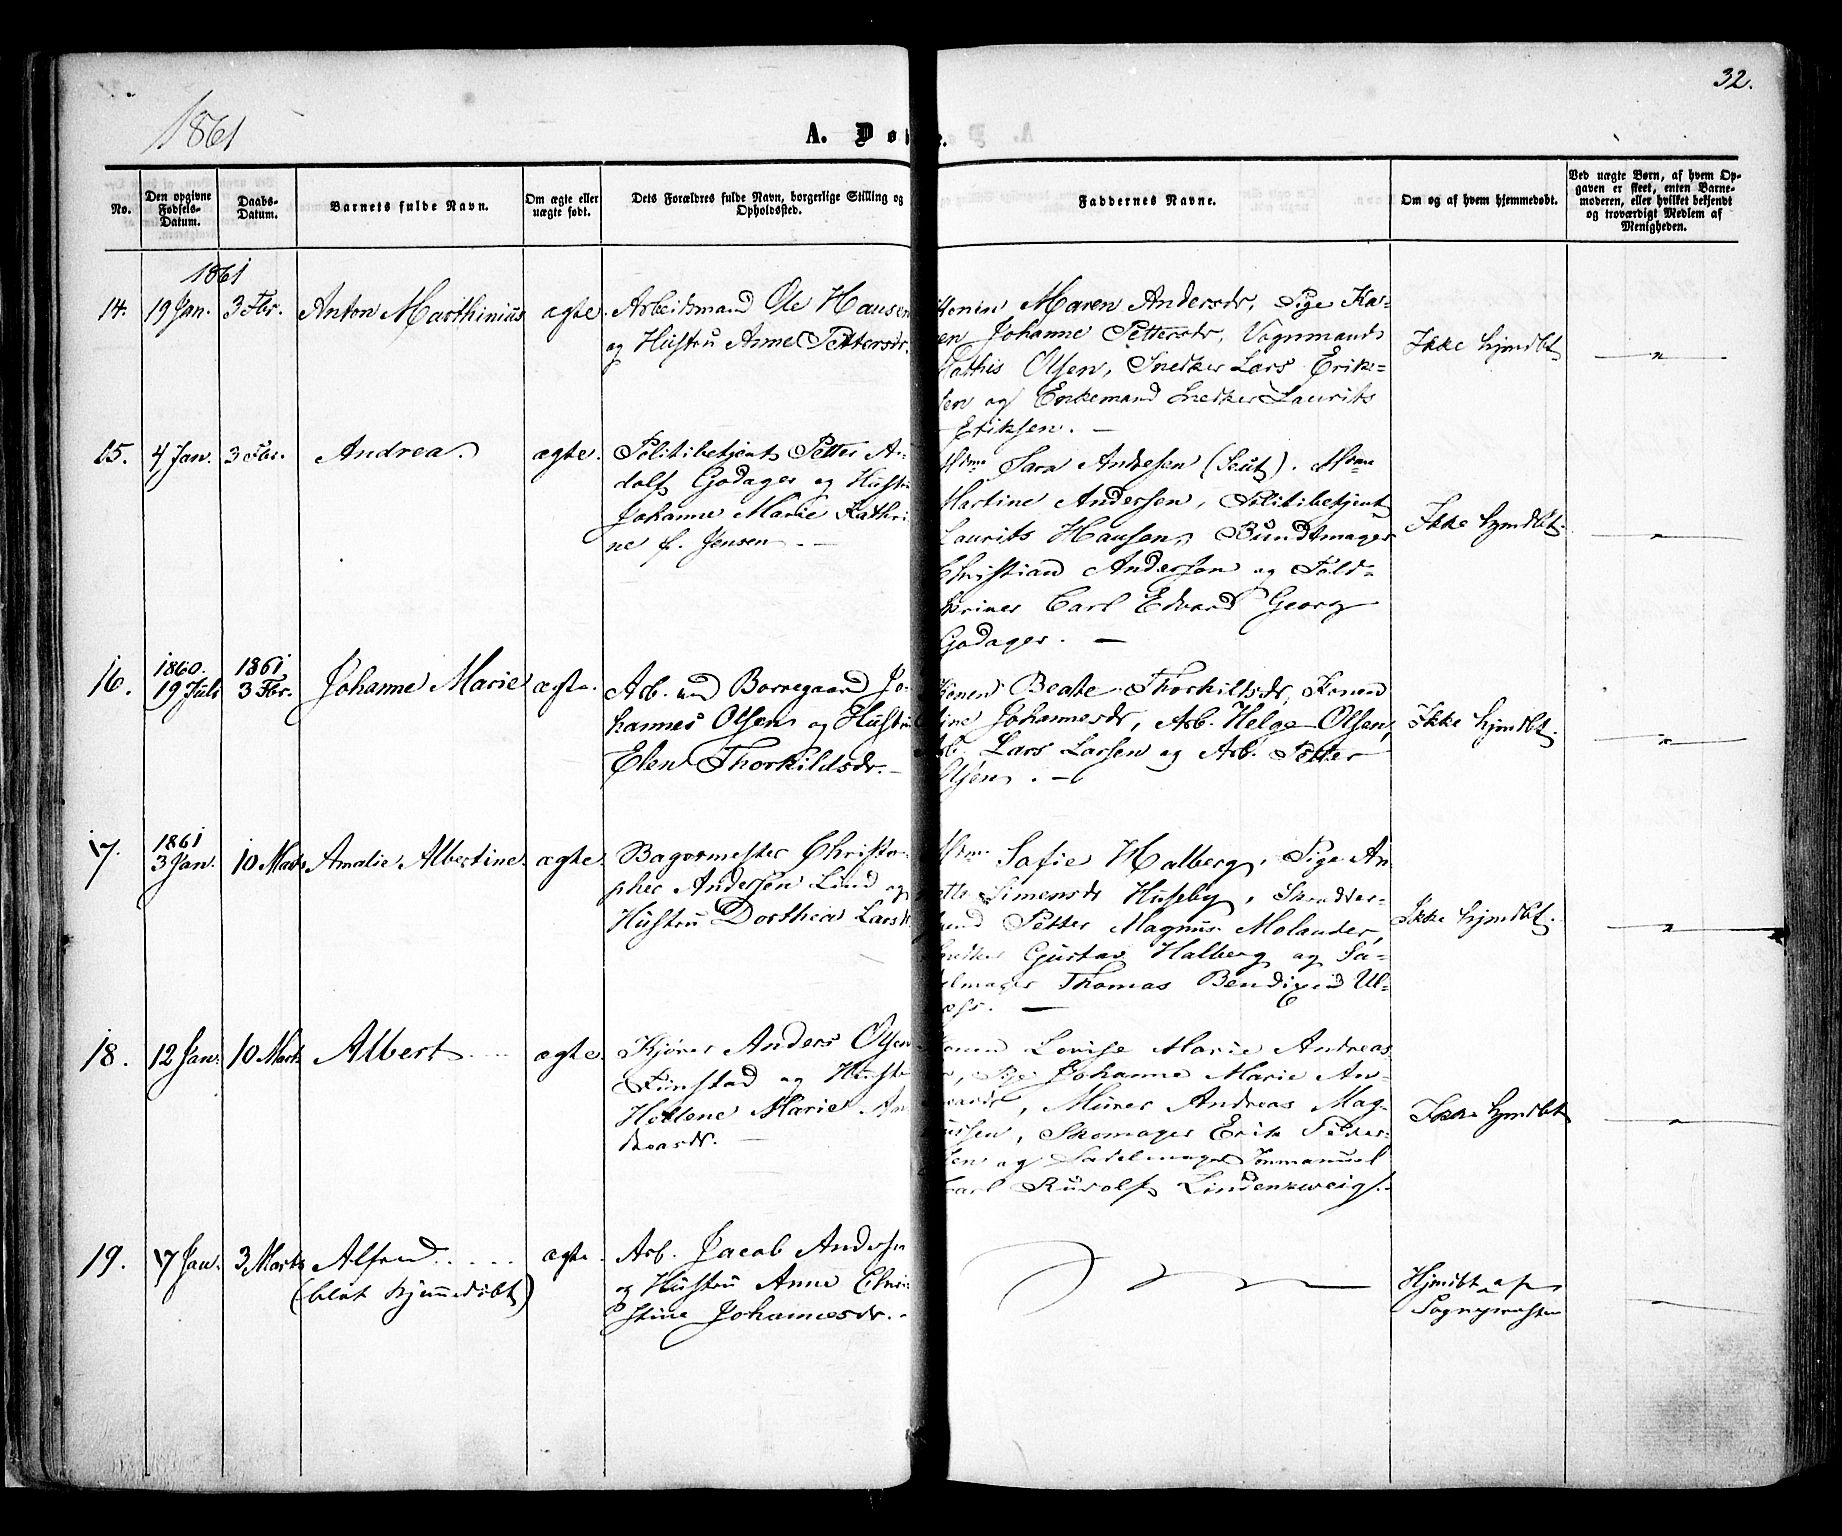 32.
1861
A. Dø e.
No.
Den opgivne
Fødsels-
Datum.
Daabs-
Datum.
Barnets fulde Navn.
Om ægte eller
uægte født.
Dets Forældres fulde Navn, borgerlige Stilling og
Opholdssted.
Faddernes Navne.
Om og af hvem hjemmedøbt.
Ved uægte Børn, af hvem Op-
gaven er skeet, enten Barne-
moderen, eller hvilket bekjendt
og troværdigt Medlem af
Menigheden.
1861
14. 19 Jan. 3 Fbr. Anton Marthinius ægte.
Arbeidsmand Ole Hansen
og Hustru Anne Pettersdr.
Konen Maren Andersdr, Pige Ka-
en Johanne Pettersdr, Vognmand
Mathis Olsen, Snedker Lars Erik-
sen og Enkemand Snedker Laurits
Eriksen. —
Ikke hjmdbt
15. 4 Jan. 3 Fbr. Andrea. ægte.
Politibetjent Petter A-
dolf Godager og Hustru
Johanne Marie Kathri-
ne f. Jensen. —
Mdme Sara Andresen (). Mdme
Martine Andersen, Politibetjent
Laurits Hansen, Bundtmager
Christian Andersen og Told-
skriver Carl Edvard Georg
Godager. —
Ikke hjmdbt.
16. 1860. 19 Juli 1861 3 Fbr. Johanne Marie ægte.
Arb. ved Borregaard Jo-
hannes Olsen og Hustru
Elen Thorkildsdr. —
Konen Beate Thorkildsdr, Konen
tine Johannesdr, Arb. Helge Olsen,
Arb. Lars Larsen og Arb. Petter
Olsen. —
Ikke hjmdbt.
17. 1861 3 Jan. 10 Marts Amalie Albertine. ægte.
Bagermester Christo-
pher Andersen Lind og
Hustru Dorthea Larsdr
Mdme Sofie Halberg, Pige An
ette Simensdr Huseby, Skrædder-
svend Petter Magnus Molander,
Snedker Gustav Halberg og Sa-
delmager Thomas Bendixen Ul-
næss. —
Ikke hjmdbt.
18. 12 Jan. 10 Marts Albert ægte.
Kjører Anders Olsen
Finstad og Hustru
Hellene Marie An
dreasdr. —
Konen Lovise Marie Andreas-
dr, Pige Johanne Marie An-
dreasdr, Murer Andreas Mag-
nussen, Skomager Erik Peder-
sen og Sadelmager Immanuel
Carl Rudolf Lindenzweig.
Ikke hjmdbt
19. 17 Jan. 3 Marts Alfred..... ægte.
(blot hjemmedøbt)
Arb. Jacob Andersen
og Hustru Anne Chri-
stine Johannesdr. -
Hjmdbt af
Sognepresten